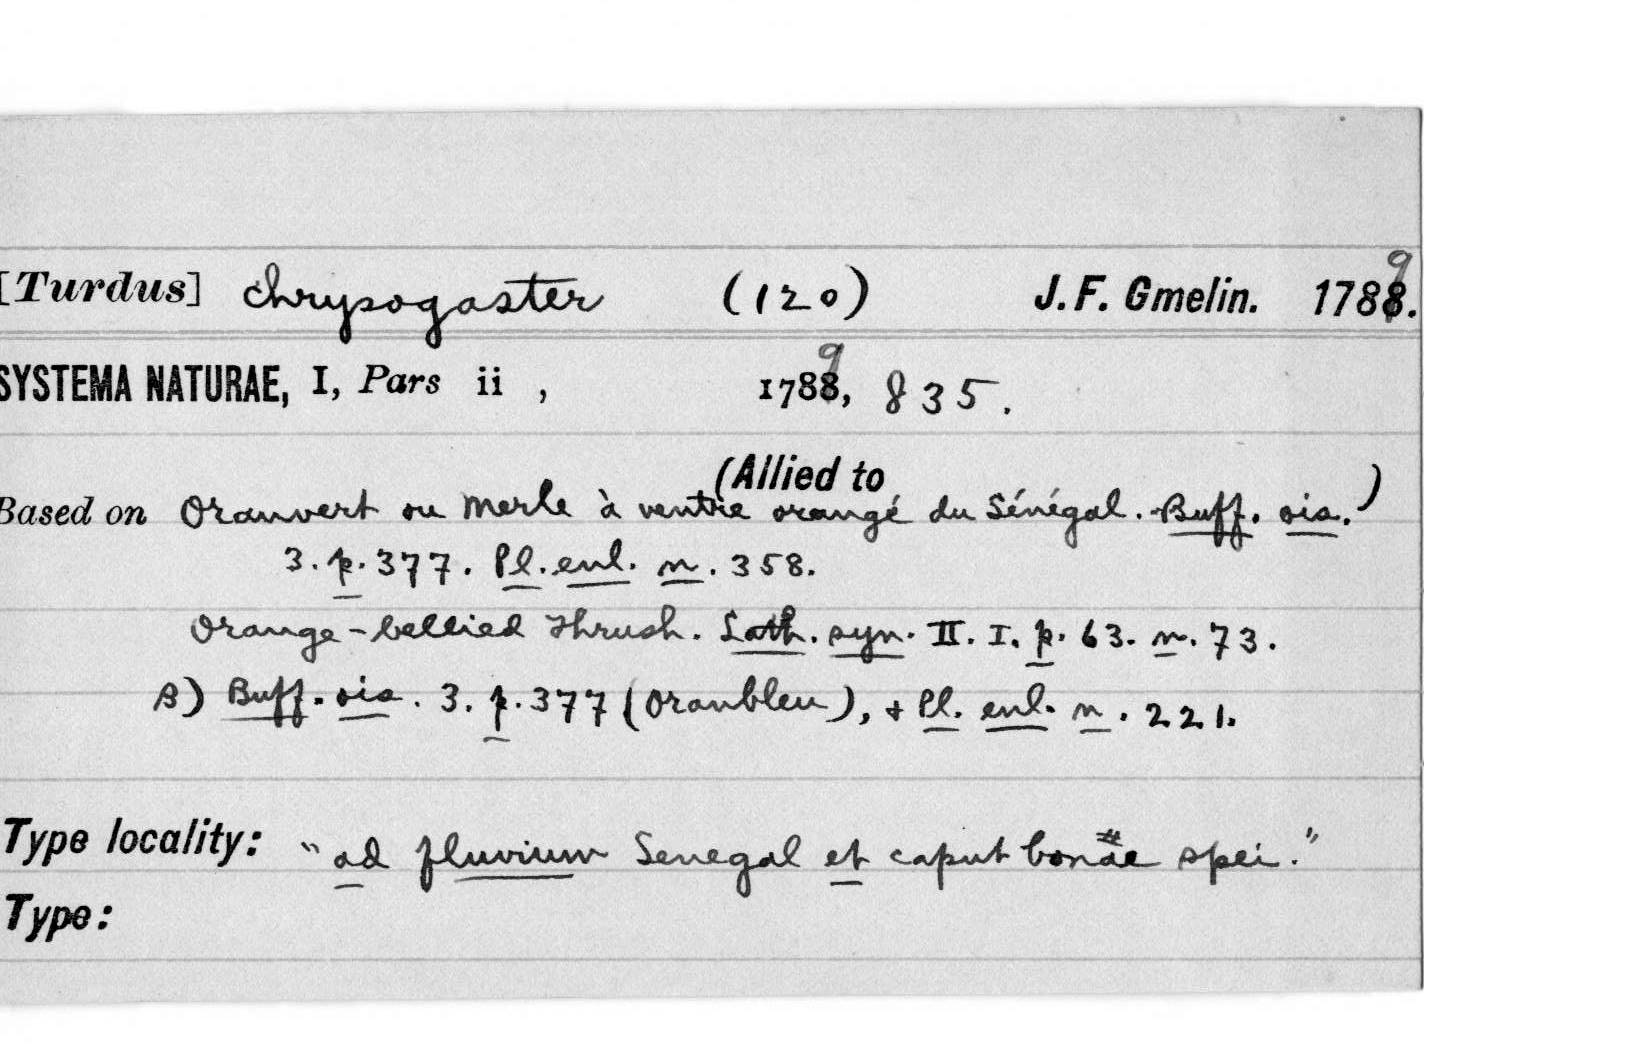 [Turdus] chrysogaster (120) J. F. Gmelin. 1789.
SYSTEMA NATURAE, I, Pars ii , 1789, 835.
(Allied to
Based on Oranvert ou Merle à ventre orangé du Sénégal. Buff. ois.)
3. p. 377. Pl. enl. n. 358.
Orange-bellied Thrush. Lath. syn. II. I. p. 63. n. 73.
B) Buff. ois. 3. p. 377 (Oranbleu), + Pl. enl. n. 221.
Type locality: "ad fluvium Senegal et caput bonae spei."
Type: